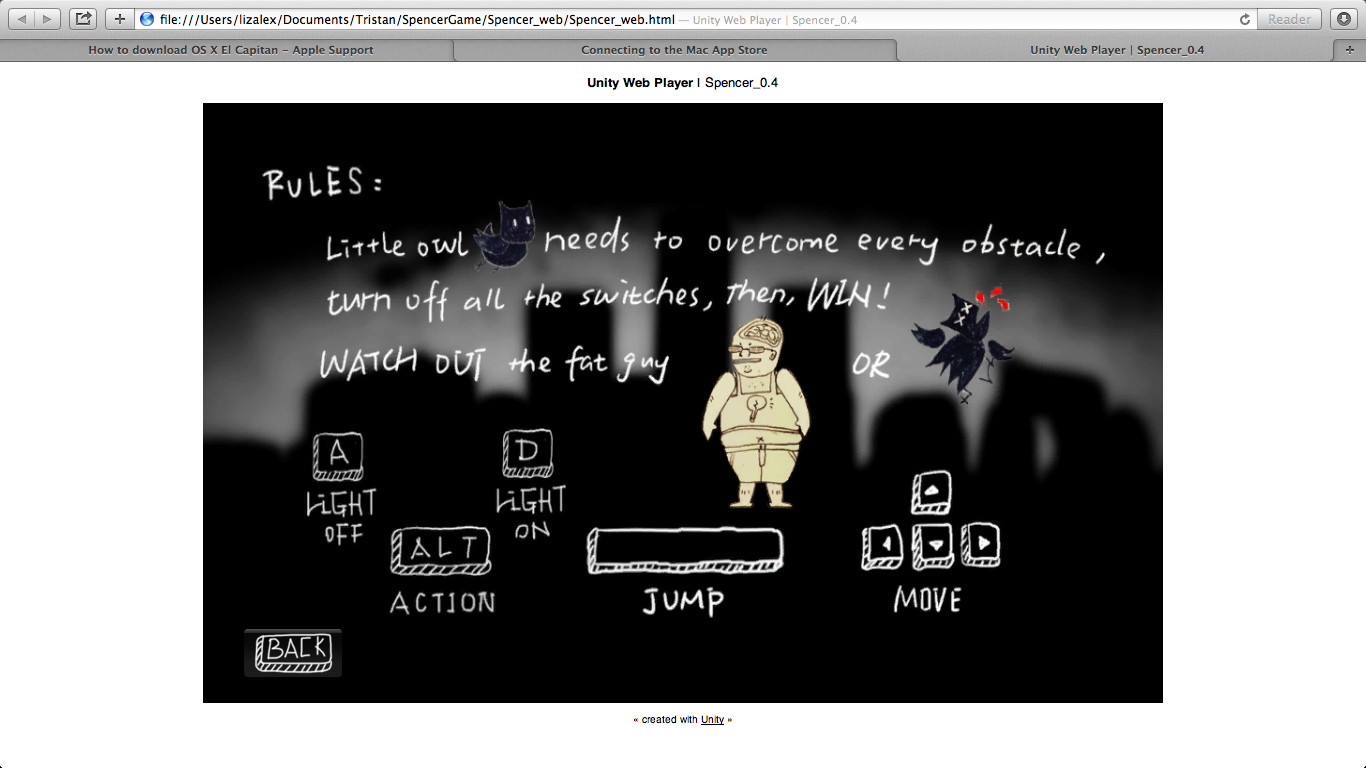 file:///Users/lizalex/Documents/Tristan/SpencerGame/Spencer_web/Spencer_web.html — Unity Web Player | Spencer_0.4
Reader
How to download OS X El Capitan - Apple Support
Connecting to the Mac App Store
Unity Web Player | Spencer_0.4
Unity Web Player | Spencer_0.4
RULES:
Little owl needs to overcome every obstacle,
turn off all the switches, then, WIN!
WATCH OUT the fat guy OR
A
D
LIGHT
OFF
LIGHT
ON
ALT
ACTION
JUMP
MOVE
BACK
« created with Unity »